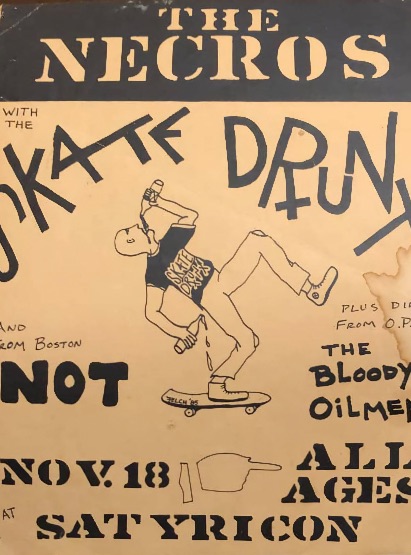 THE
NECROS
WITH
THE
SKATE DRUNX
SKATE
DRUNX
AND
FROM BOSTON
NOT
PLUS DI
FROM O.P.
THE
BLOODY
OILMEN
NOV. 18
ALL
AGES
AT
SATYRICON